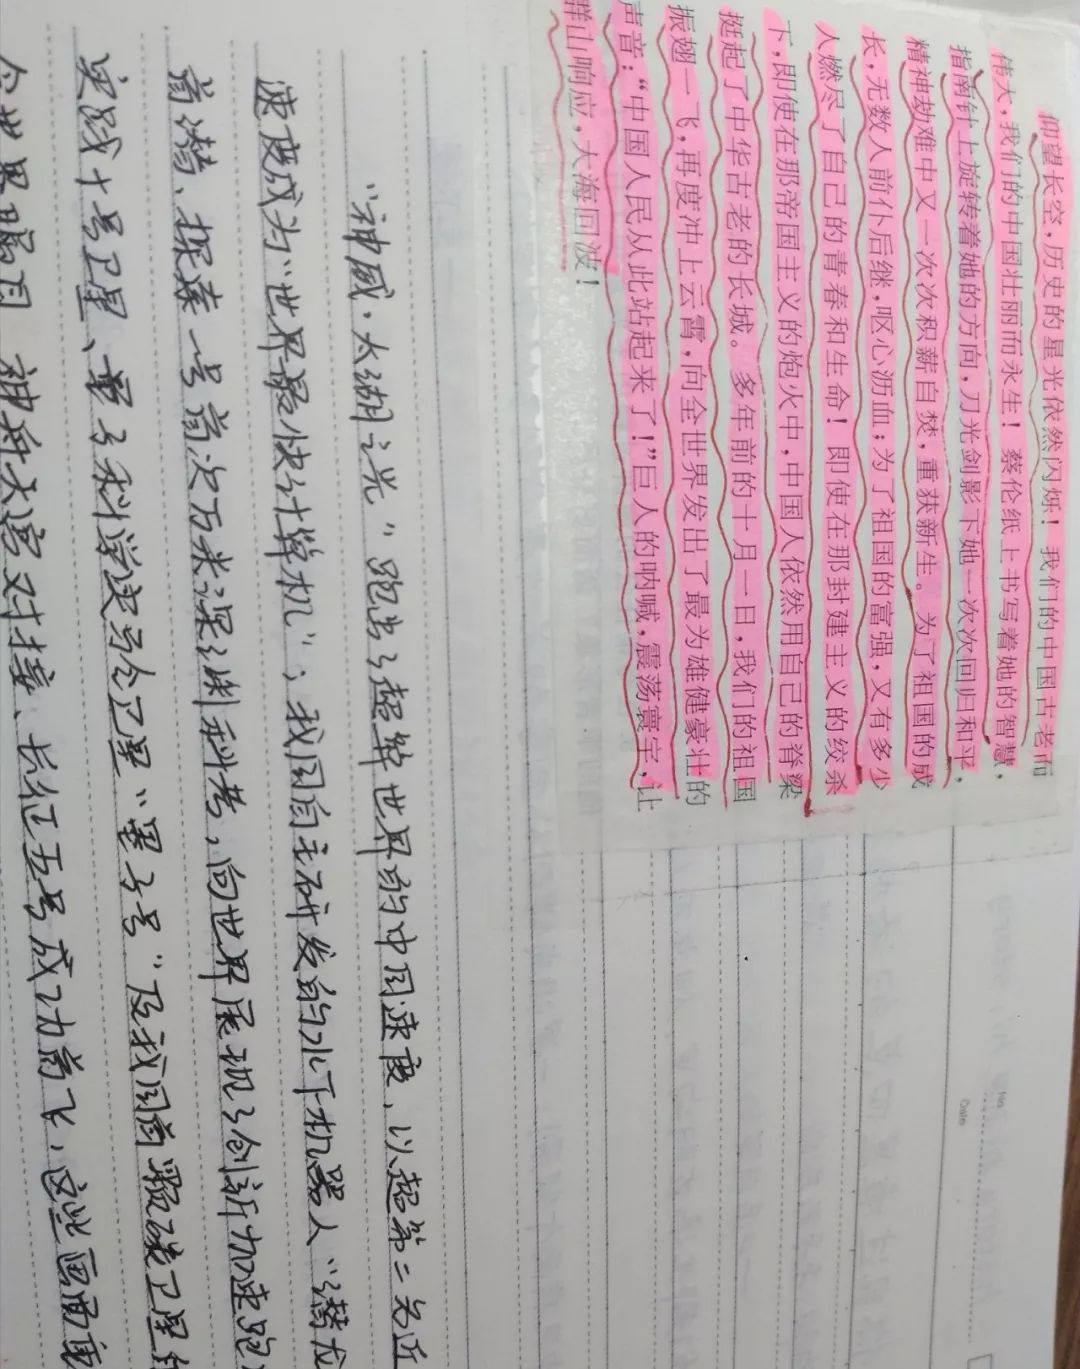 No.
Date
仰望长空，历史的星光依然闪烁！我们的中国古老而
伟大，我们的中国壮丽而永生！蔡伦纸上书写着她的智慧，
指南针上旋转着她的方向，刀光剑影下她一次次回归和平，
精神劫难中又一次次积薪自焚，重获新生。为了祖国的成
长，无数人前仆后继，呕心沥血；为了祖国的富强，又有多少
人燃尽了自己的青春和生命！即使在那封建主义的绞杀
下，即使在那帝国主义的炮火中，中国人依然用自己的脊梁
挺起了中华古老的长城。多年前的十月一日，我们的祖国
振翅一飞，再度冲上云霄，向全世界发出了最为雄健豪壮的
声音：“中国人民从此站起来了！”巨人的呐喊，震荡寰宇，让
群山响应，大海回波！
“神威·太湖之光”跑出了超举世界的中国速度，以超第二名近
速度成为“世界最快计算机”；我国自主研发的水下机器人“潜龙
首潜、探索一号首次万米深渊科考，向世界展现了创新加速跑
实践十号卫星、量子科学实验卫星“墨子号”及我国首颗碳卫星
令世界瞩目 神舟天宫对接、长征五号成功首飞，这些画面